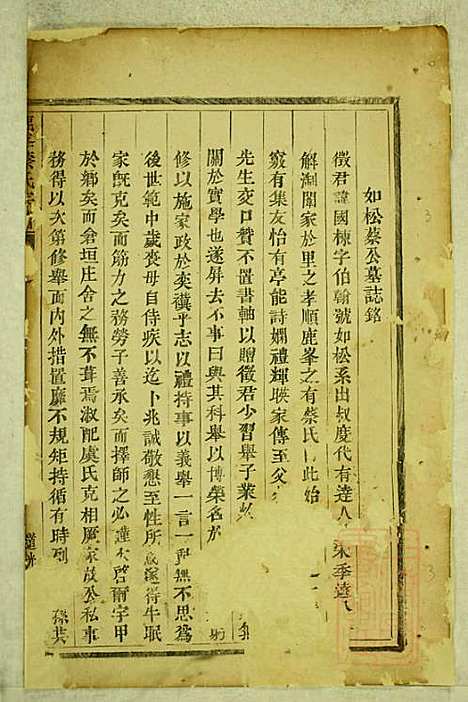 如松蔡公墓誌銘
徵君諱國棟字伯翰號如松系出叔度代有達人 宋季達
解淛閫家於里之孝順鹿峯之有蔡氏 此始
窽有集友怡有亭能詩嫻禮輝暎家傳至父
先生交口贊不置書軸以贈徵君少習舉子業
關於實學也遂屏去不事曰與其科舉以博榮名
修以施家政於奕禩乎志以禮持事以義舉一言一 無不思為
後世範中歲喪母自侍疾以迄卜兆誠敬懇至性所 遂得牛眠
家既克矣而筋力之務勞子善承矣而擇師之必謹 啓爾宇甲
於鄉矣而倉垣庄舍之無不葺焉淑配虞氏克相厥家故公私事
務得以次第修舉而內外措置靡不規矩持循有時 孫其
蔡氏